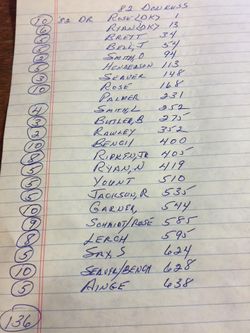 82 DONRUSS
10 82 DR ROSE (DK) 1
6 RYAN (DK) 13
5 BRETT 34
5 BELL, J 54
2 SMITH, O 94
8 HENDERSON 113
3 SEAVER 148
10 ROSE 168
PALMER 231
4 SMITH, L 252
3 BUTLER, B 275
2 RAWLEY 352
10 BENCH 400
8 RIPKEN, JR 405
5 RYAN, N 419
5 YOUNT 510
5 JACKSON, R 535
10 GARNER 544
9 SCHMIDT/ROSE 585
8 LERCH 595
5 SAX, S 624
10 SEAVER/BENCH 628
5 AINGE 638
136